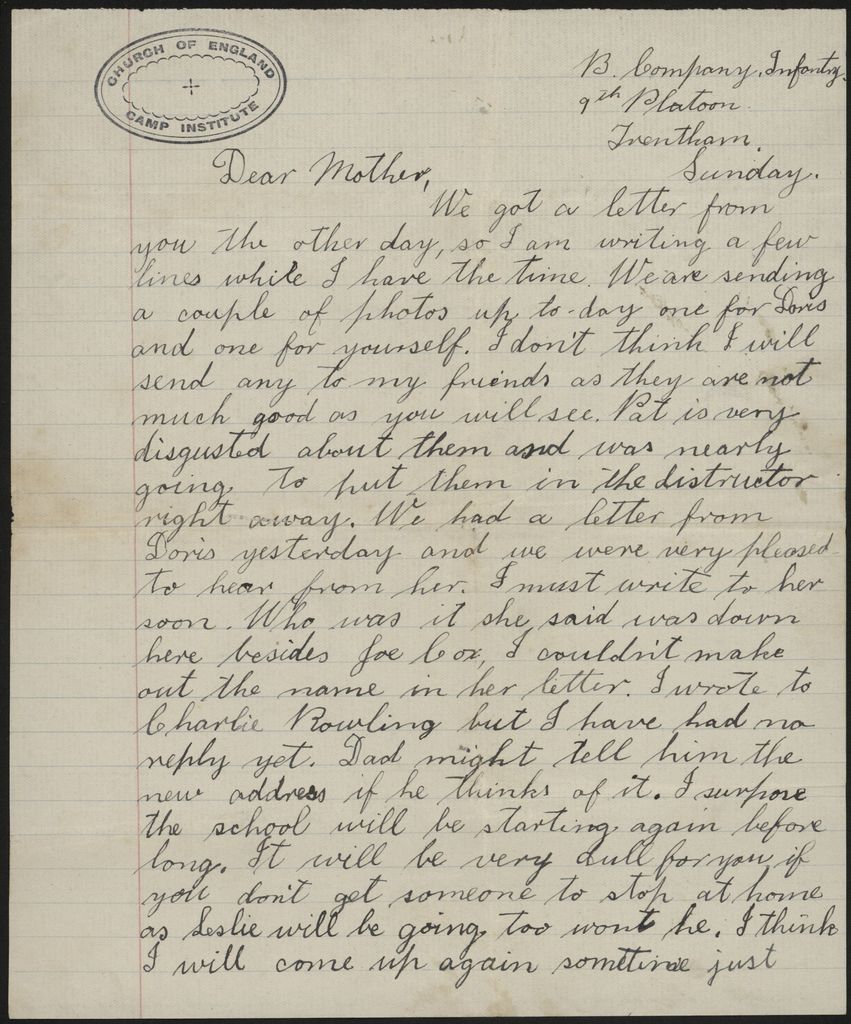 CHURCH OF ENGLAND
CAMP INSTITUTE
B. Company, Infantry.
9th Platoon.
Trentham.
Sunday.
Dear Mother,
We got a letter from
you the other day, so I am writing a few
lines while I have the time. We are sending
a couple of photos up to-day one for Doris
and one for yourself. I don't think I will
send any to my friends as they are not
much good as you will see. Pat is very
disgusted about them and was nearly
going to put them in the distructor
right away. We had a letter from
Doris yesterday and we were very pleased
to hear from her. I must write to her
soon. Who was it she said was down
here besides Joe Cox, I couldn't make
out the name in her letter. I wrote to
Charlie Rowling but I have had no
reply yet. Dad might tell him the
new address if he thinks of it. I surpose
the school will be starting again before
long. It will be very dull for you if
you don't get someone to stop at home
as Leslie will be going too wont he. I think
I will come up again sometime just